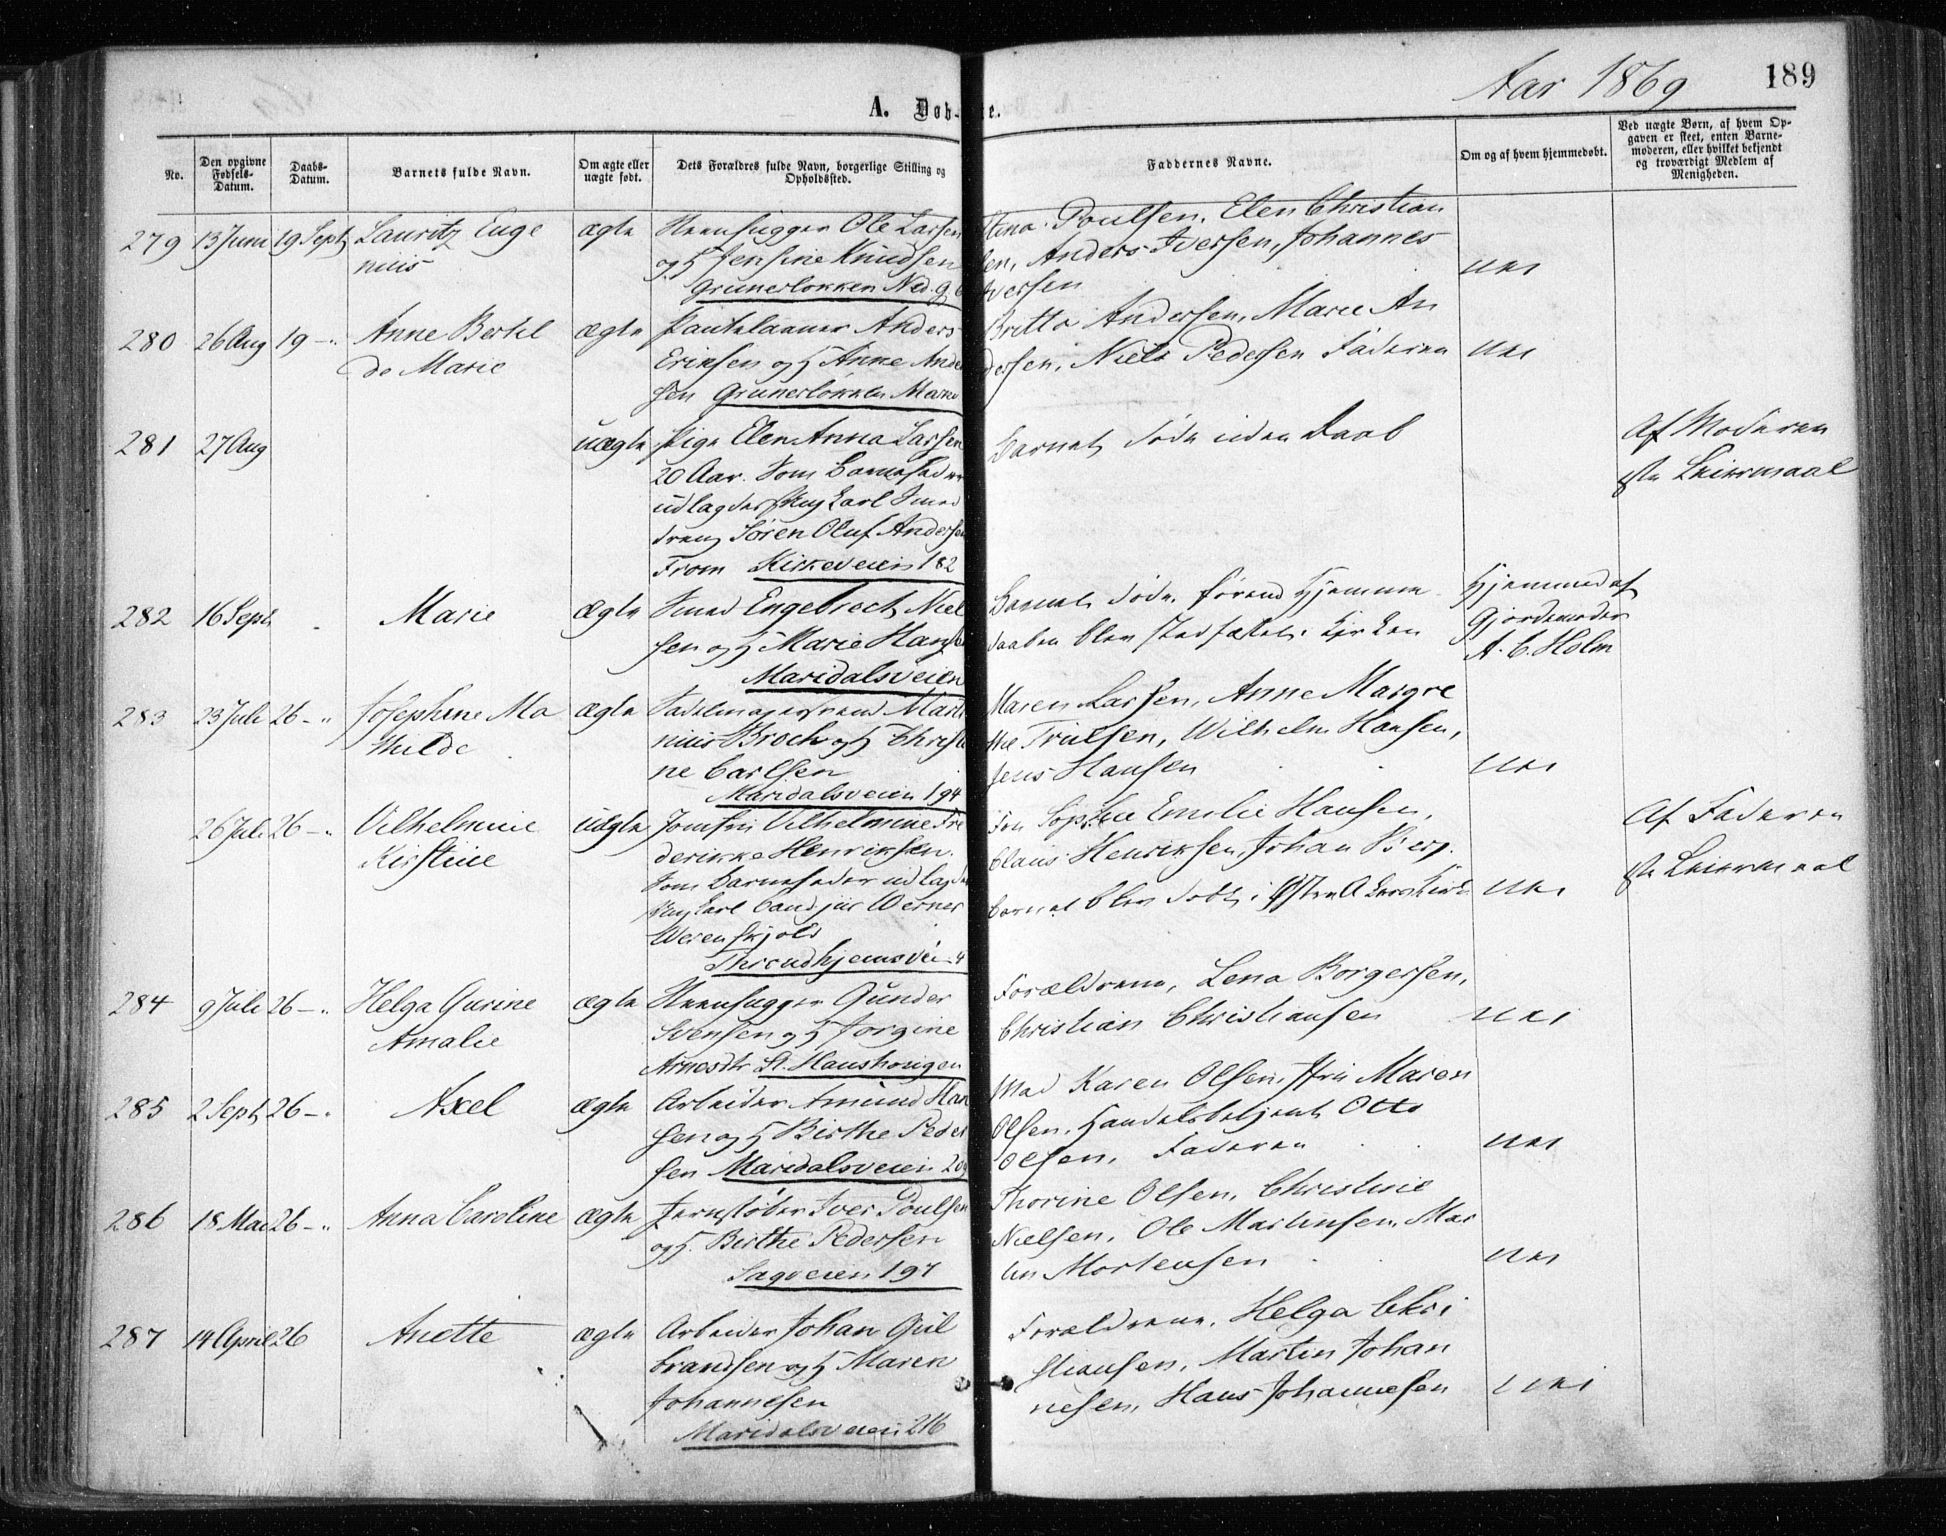 Aar 1869
189
A. Døb-
e.
No.
Den opgivne Fødsels-Datum.
Daabs-Datum.
Barnets fulde Navn.
Om ægte eller uægte født.
Dets Forældres fulde Navn, borgerlige Stilling og Opholdssted.
Faddernes Navne.
Om og af hvem hjemmedøbt.
Ved uægte Børn, af hvem Opgaven er skeet, enten Barnemoderen, eller hvilket bekjendt og troværdigt Medlem af Menigheden.
279 13 Juni 19 Sept Lauritz Euge ægte Steenhugger Ole Larsen
nius og H Jensine Knudsen
Grünerløkken Ned. g.
Stina Poulsen, Elen Christian
sen, Anders Iversen, Johannes
Iversen
nei
280 26 Aug 19 -"- Anne Berthil ægte Pantelaaner Anders
de Marie Eriksen og H Anne Ander
sen Grünerløkken
Britta Andersen, Marie An
dersen, Niels Pedersen Faderen
nei
281 27 Aug uægte Pige Elen Anna Larsen
20 Aar. Som Barnefader
udlagdes Ungkarl Smed
dreng Søren Oluf Andersen
From Kirkeveien 182
Barnet døde uden Daab
Af Moderen
1ste Leiermaal
282 16 Sept Marie ægte Smed Engebrect Niel
sen og H Marie Hansen
Maridalsveien
Barnet døde førend Hjemme
daaben blev stadfæstet i Kirken
Hjemmed. af
Gjordemoder
A. C. Holm
283 23 Juli 26 -"- Josephine Ma ægte Sadelmagersvend Marti
thilde nius Broch og H Christi
ne Carlsen
Maridalsveien 194
Maren Larsen, Anne Margre
the Trulsen, Wilhelm Hansen,
Jens Hansen
nei
26 Juli 26 -"- Vilhelmine uægte Jomfru Vilhelmine Fre
Kirstine derikke Henriksen.
Som Barnefader udlagdes
Ungkarl Cand jur Werner
Werenskjold
Throndhjemsvei 4
Fru Sophie Emilie Hansen,
Claus Henriksen, Johan Berg.
Barnet blev døbt i Østre Akers Kirke
nei
Af Faderen
1ste Leiermaal
284 9 Juli 26 -"- Helga Gurine ægte Steenhugger Gunder
Amalie Svensen og H Jorgine
Arnesdtr St. Hanshougen
Forældrene, Lena Borgersen,
Christian Christiansen
nei
285 2 Sept 26 -"- Axel ægte Arbeider Amund Han
sen og H Birthe Peder
sen Maridalsveien 209
Mad Karen Olsen, Jfru Maren
Olsen, Handelsbetjent Otto
Olsen, Faderen
nei
286 18 Mai 26 -"- Anna Caroline ægte Jernstøber Iver Poulsen
og H. Birthe Pedersen
Sagveien 197
Thorine Olsen, Christine
Nielsen, Ole Martinsen, Mar
tin Mortensen
nei
287 14 April 26 Anette ægte Arbeider Johan Gul
brandsen og H Maren
Johannesen
Maridalsveien 216
Forældrene, Helga Chri
stiansen, Martin Johan
nesen, Hans Johannesen
nei